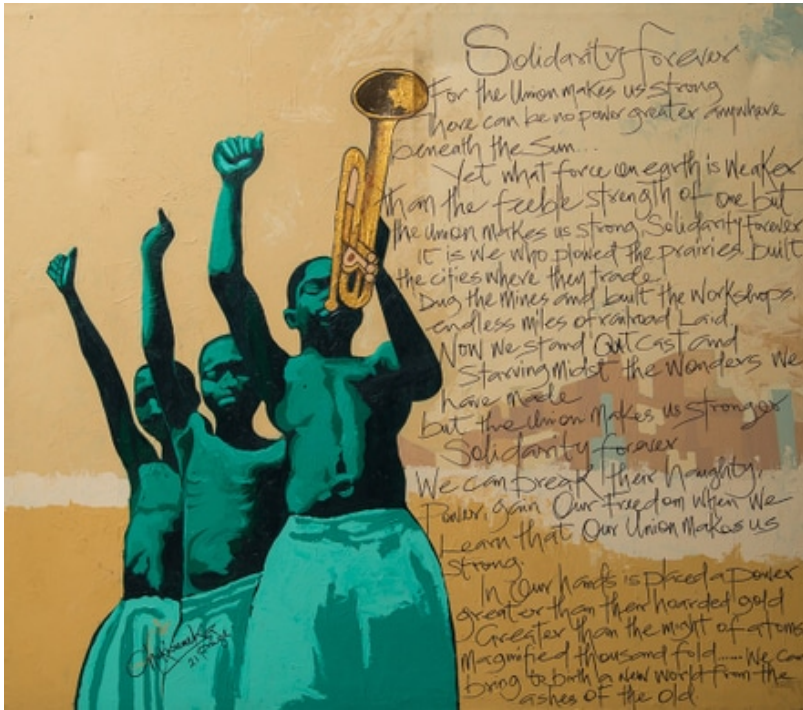 Solidarity forever
For the Union makes us strong
here can be no power greater anywhere
beneath the Sun...
Yet what force on earth is Weaker
than the feeble strength of one but
the union makes us strong Solidarity Forever
It is we who plowed the prairies, built
the cities where they trade
Dug the Mines and built the Workshops,
endless miles of railroad Laid
Now we stand Outcast and
Starving midst the Wonders We
have made
but the Union Makes us stronger
Solidarity forever
We can break their haughty
Power, gain Our Freedom when We
Learn that Our Union Makes us
Strong.
In Our hands is placed a power
greater than their hoarded gold
Greater than the might of atoms
Magnified thousand fold..... We can
bring to birth a new World from the
ashes of the old